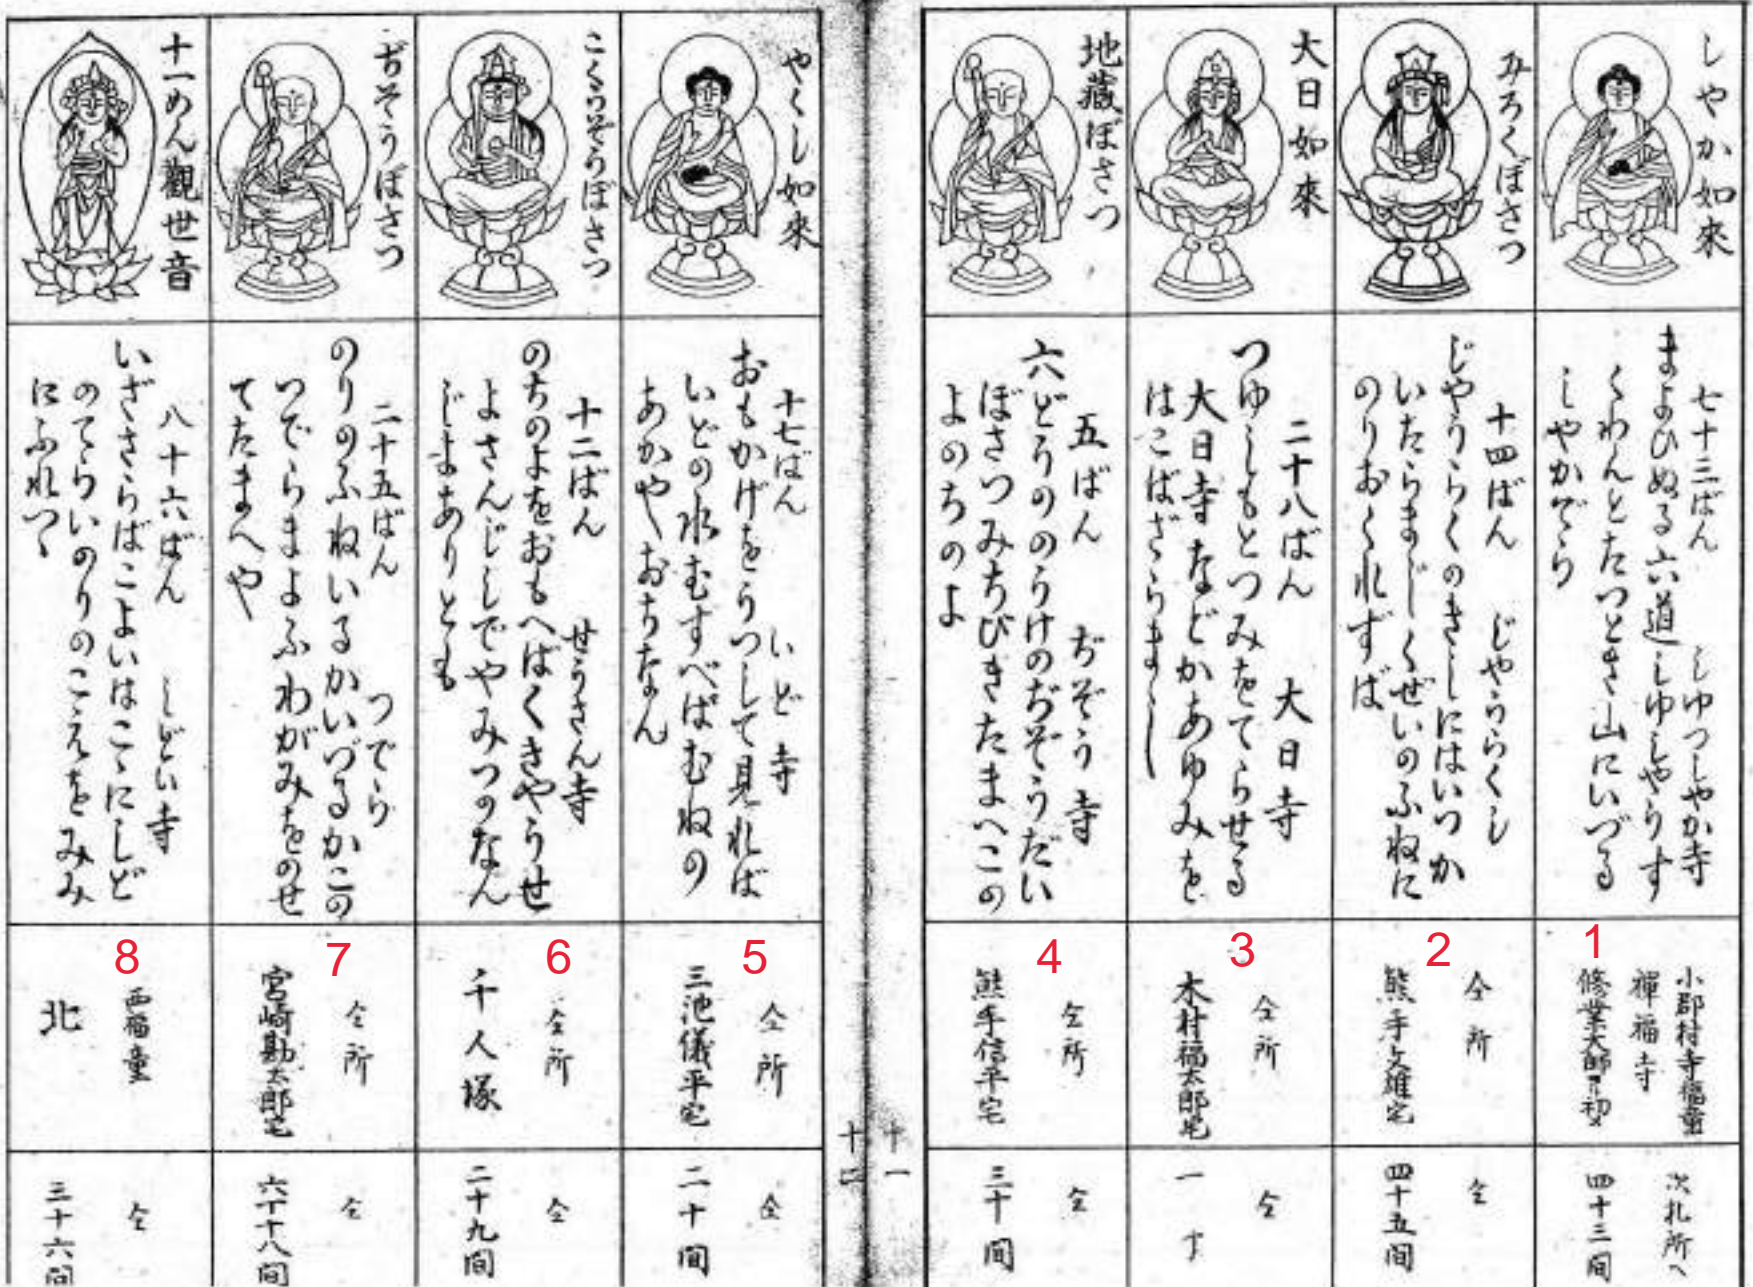 しやか如來
七十三ばん しゆつしやか寺
まよひぬる六道しゆしやうす
くわんとたつとき山にいづる
しやかでら
1
小郡村寺福童
禪福寺
修業大師ヨリ初メ
次札所へ
四十三間
みろくぼさつ
十四ばん じやうらくじ
じやうらくのきしにはいつか
いたらまじくぜいのふねに
のりおくれずば
2
仝所
熊手文雄宅
仝
四十五間
大日如來
二十八ばん 大日寺
つゆしもとつみをてらせる
大日寺などかあゆみを
はこばざらまし
3
仝所
木村福太郎宅
仝
一丁
地藏ぼさつ
五ばん ぢぞう寺
六どうののうけのぢぞうだい
ぼさつみちびきたまへこの
よのちのよ
4
仝所
熊手信平宅
仝
三十間
十一
やくし如來
十七ばん いど寺
おもかげをうつして見れば
いどの水むすべばむねの
あかやおちなん
5
仝所
三池儀平宅
仝
二十間
こくうぞうぼさつ
十二ばん せうさん寺
のちのよをおもへばくきやうせ
よさんじしでやみつのなん
じよありとも
6
仝所
千人塚
仝
二十九間
ぢぞうぼさつ
二十五ばん つでら
のりのふねいるかいづるかこの
つでらまよふわがみをのせ
てたまへや
7
仝所
宮崎勘太郎宅
仝
六十八間
十一めん觀世音
八十六ばん しどい寺
いざさらばこよいはこゝにしど
のてらいのりのこえをみみ
にふれつゝ
8
西福童
北
仝
三十六間
十二